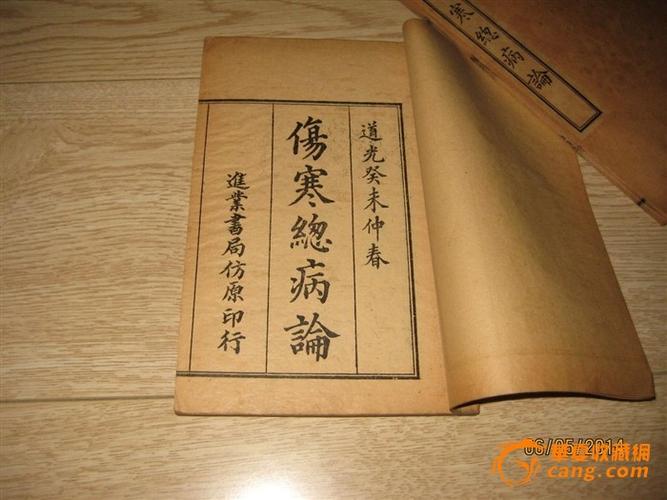 道光癸未仲春
傷寒總病論
進業書局仿原印行
寒總病論
06/05/2014
華夏收藏網
cang.com